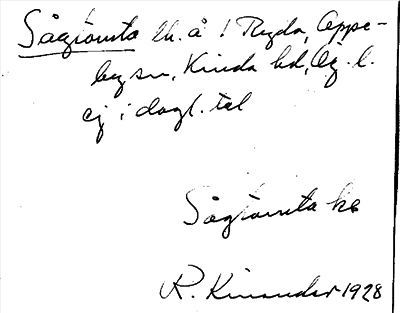 Sågtomta lh. å ! Ryda, Oppe-
by sn, Kinda hd, Ög. l.
ej i dagl. tal
Sågtomta ke
R. Kinander 1928